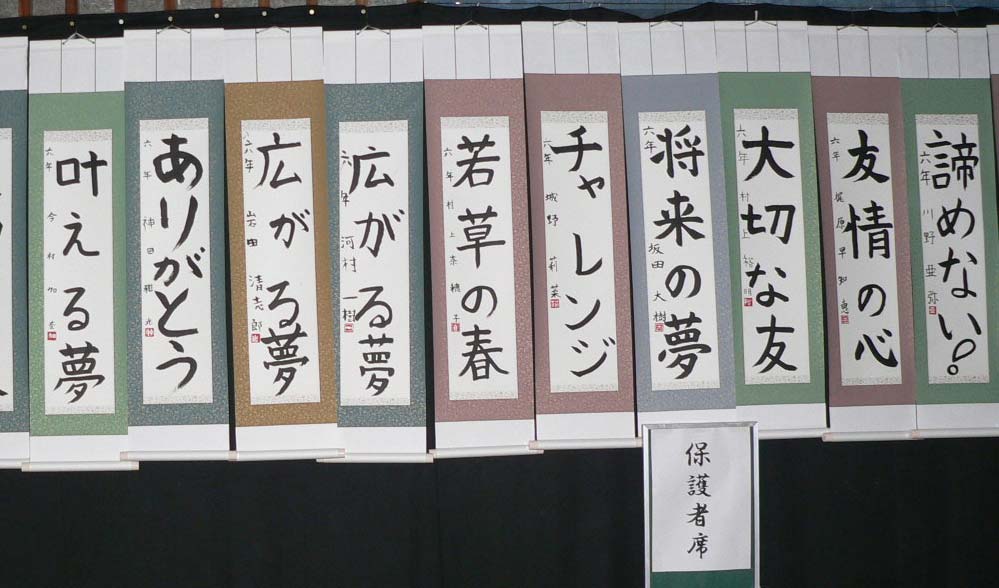 諦めない。
六年 川野 亜弥
友情の心
六年 梶原早知恵
大切な友
六年 村上裕明
将来の夢
六年 坂田大樹
チャレンジ
六年 城野 莉菜
若草の春
六年 村上奈穂子
広がる夢
六年 河村一樹
広がる夢
六年 岩田清志郎
ありがとう
六年
叶える夢
六年 今村
保護者席